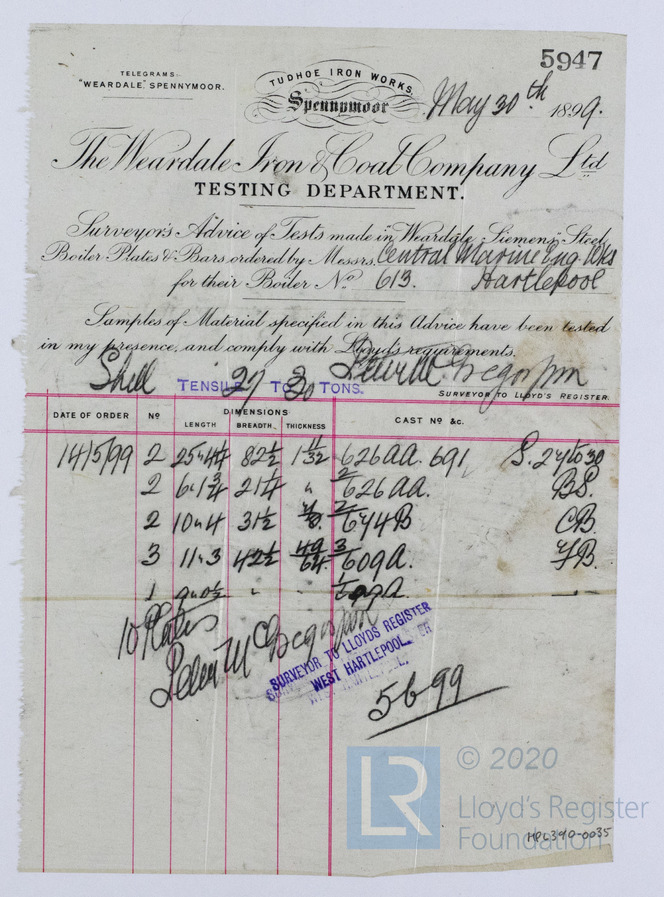 5947
TELEGRAMS.
"WEARDALE" SPENNYMOOR.
TUDHOE IRON WORKS,
Spennymoor
May 30th 1899.
The Weardale Iron & Coal Company Ltd
TESTING DEPARTMENT.
Surveyor's Advice of Tests made in Weardale-Siemens-Steel
Boiler Plates & Bars ordered by Messrs. Central Marine Eng. Wks
for their Boiler No 613. Hartlepool
Samples of Material specified in this Advice have been tested
in my presence, and comply with Lloyd's requirements.
Shell TENSILE 27 TO 30 TONS.
SURVEYOR TO LLOYD'S REGISTER.
DATE OF ORDER No DIMENSIONS CAST No &c.
LENGTH BREADTH THICKNESS
14/5/99 2 82½ 1 11/32 626AA. 691 S. 27 to 30
2 21¼ " 2/626AA. BS.
2 10"4 31½ 2/644B CB
3 11"3 42½ 49/64 3/609A. FB.
1 9"0½ " "
10 Plates
SURVEYOR TO LLOYDS REGISTER
WEST HARTLEPOOL.
5 6 99
LR
© 2020
Lloyd's Register
Foundation
HPL390-0035